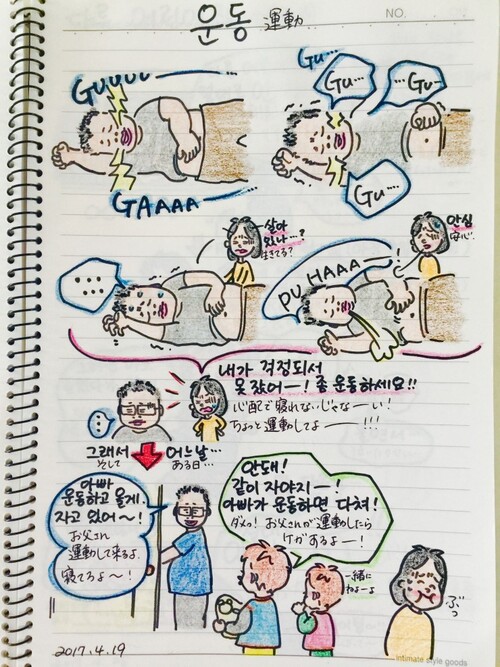 운동 運動
NO.
GUUUU
GAAAA
Gu…
Gu…
…Gu…
Gu…
살아
있나…?
生きてる?
안심
安心
.....
PU HAAA
내가 걱정되서
못 잤어ー! 좀 운동하세요!!
心配で寝れないじゃなーい!
ちょっと運動してよー!!!
…
그래서
そして
어느날…
ある日…
아빠
운동하고 올게.
자고 있어~!
お父さん
運動して来るよ
寝てろよ~!
안돼!
같이 자야지ー!
아빠가 운동하면 다쳐!
ダメっ! お父さんが運動したら
ケガするよー!
一緒に
ねよーよ
ぶっ
2017.4.19
intimate style goods